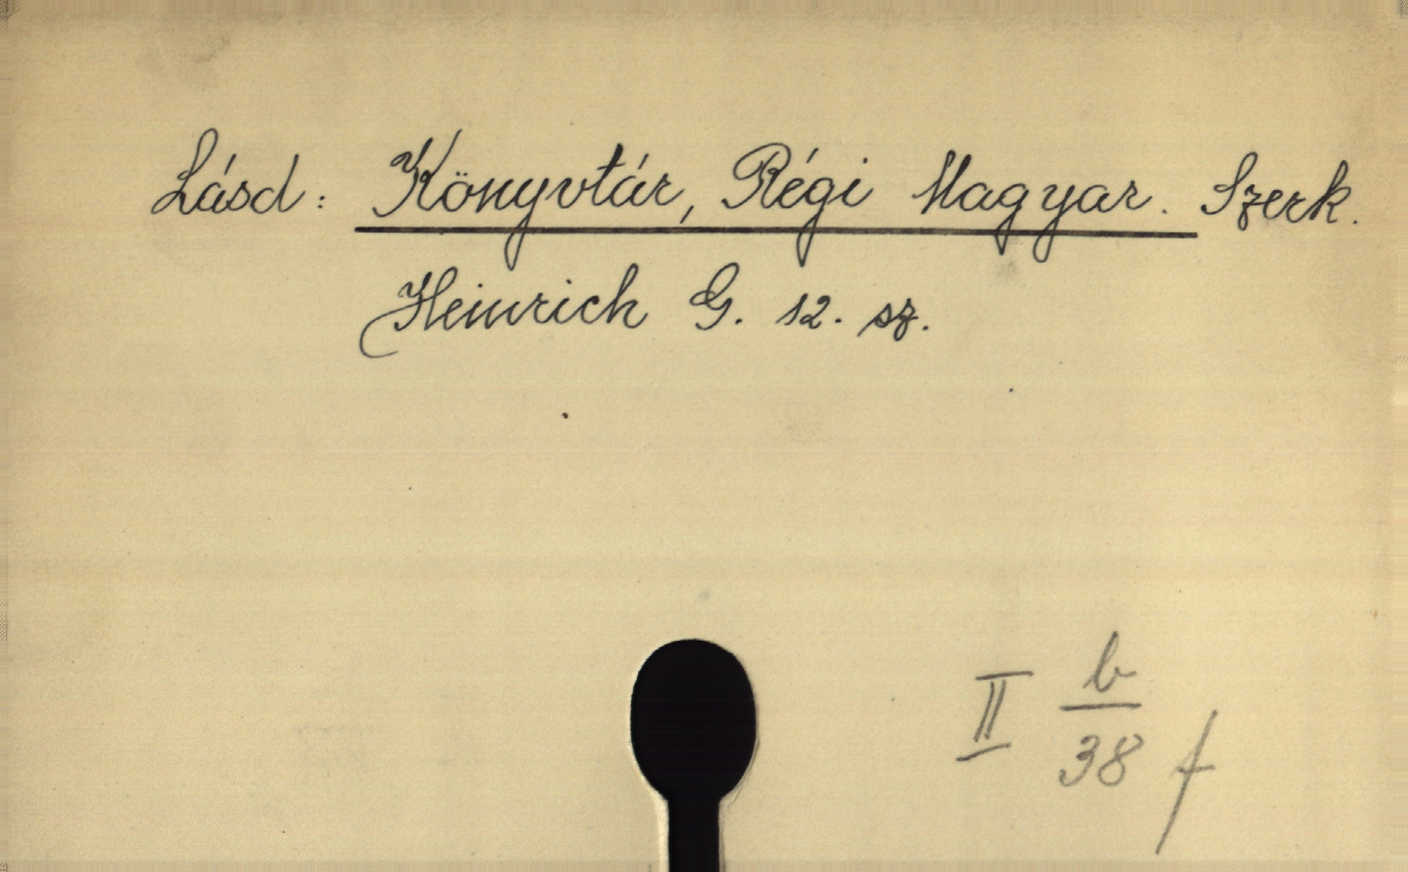 Lásd: Könyvtár, Régi Magyar. Szerk.
Heinrich G. 12. sz.
II b
38 f